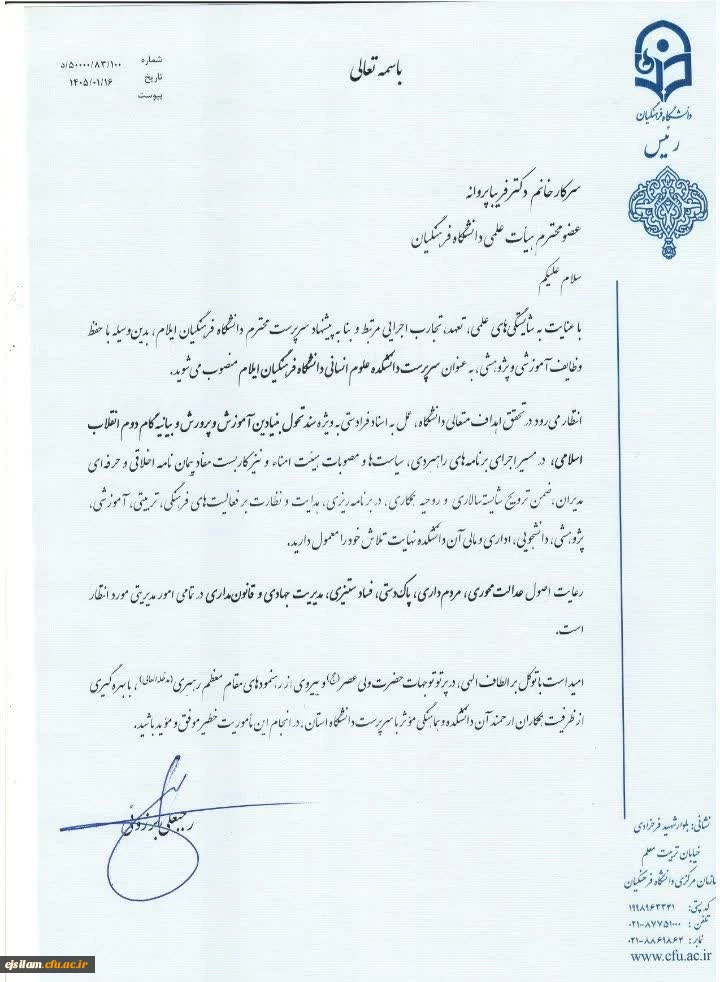 باسمه تعالی
شماره ۵/۵۰۰۰۰/۸۳/۱۰۰
تاریخ ۱۴۰۵/۰۱/۱۶
پیوست
دانشگاه فرهنگیان
رئیس
سرکار خانم دکتر فریبا پروانه
عضو محترم هیأت علمی دانشگاه فرهنگیان
سلام علیکم
با عنایت به شایستگی‌های علمی، تعهد، تجارب اجرایی مرتبط و بنا به پیشنهاد سرپرست محترم دانشگاه فرهنگیان ایلام، بدین‌وسیله با حفظ
وظایف آموزشی و پژوهشی، به عنوان سرپرست دانشکده علوم انسانی دانشگاه فرهنگیان ایلام منصوب می‌شوید.
انتظار می‌رود در تحقق اهداف متعالی دانشگاه، عمل به اسناد فرادستی به ویژه سند تحول بنیادین آموزش و پرورش و بیانیه گام دوم انقلاب
اسلامی، در مسیر اجرای برنامه‌های راهبردی، سیاست‌ها و مصوبات هیئت امناء و نیز کاربست مفاد پیمان نامه اخلاقی و حرفه‌ای
مدیران، ضمن ترویج شایسته‌سالاری و روحیه همکاری، در برنامه‌ریزی، هدایت و نظارت بر فعالیت‌های فرهنگی، تربیتی، آموزشی،
پژوهشی، دانشجویی، اداری و مالی آن دانشکده نهایت تلاش خود را معمول دارید.
رعایت اصول عدالت محوری، مردم‌داری، پاک‌دستی، فساد ستیزی، مدیریت جهادی و قانون‌مداری در تمامی امور مدیریتی مورد انتظار
است.
امید است با توکل بر الطاف الهی، در پرتو توجهات حضرت ولی عصر(عج) و پیروی از رهنمودهای مقام معظم رهبری (مدظله‌العالی)، با بهره‌گیری
از ظرفیت همکاران ارجمند آن دانشکده و هماهنگی مؤثر با سرپرست دانشگاه استان، در انجام این مأموریت خطیر موفق و مؤید باشید.
رجبعلی برزوئی
نشانی: بلوار شهید فرحزادی
خیابان تربیت معلم
سازمان مرکزی دانشگاه فرهنگیان
کد پستی: ۱۹۹۸۹۶۳۳۴۱
تلفن: ۰۲۱-۸۷۷۵۱۰۰۰
نمابر: ۰۲۱-۸۸۶۹۸۶۴
www.cfu.ac.ir
ejsilam.cfu.ac.ir